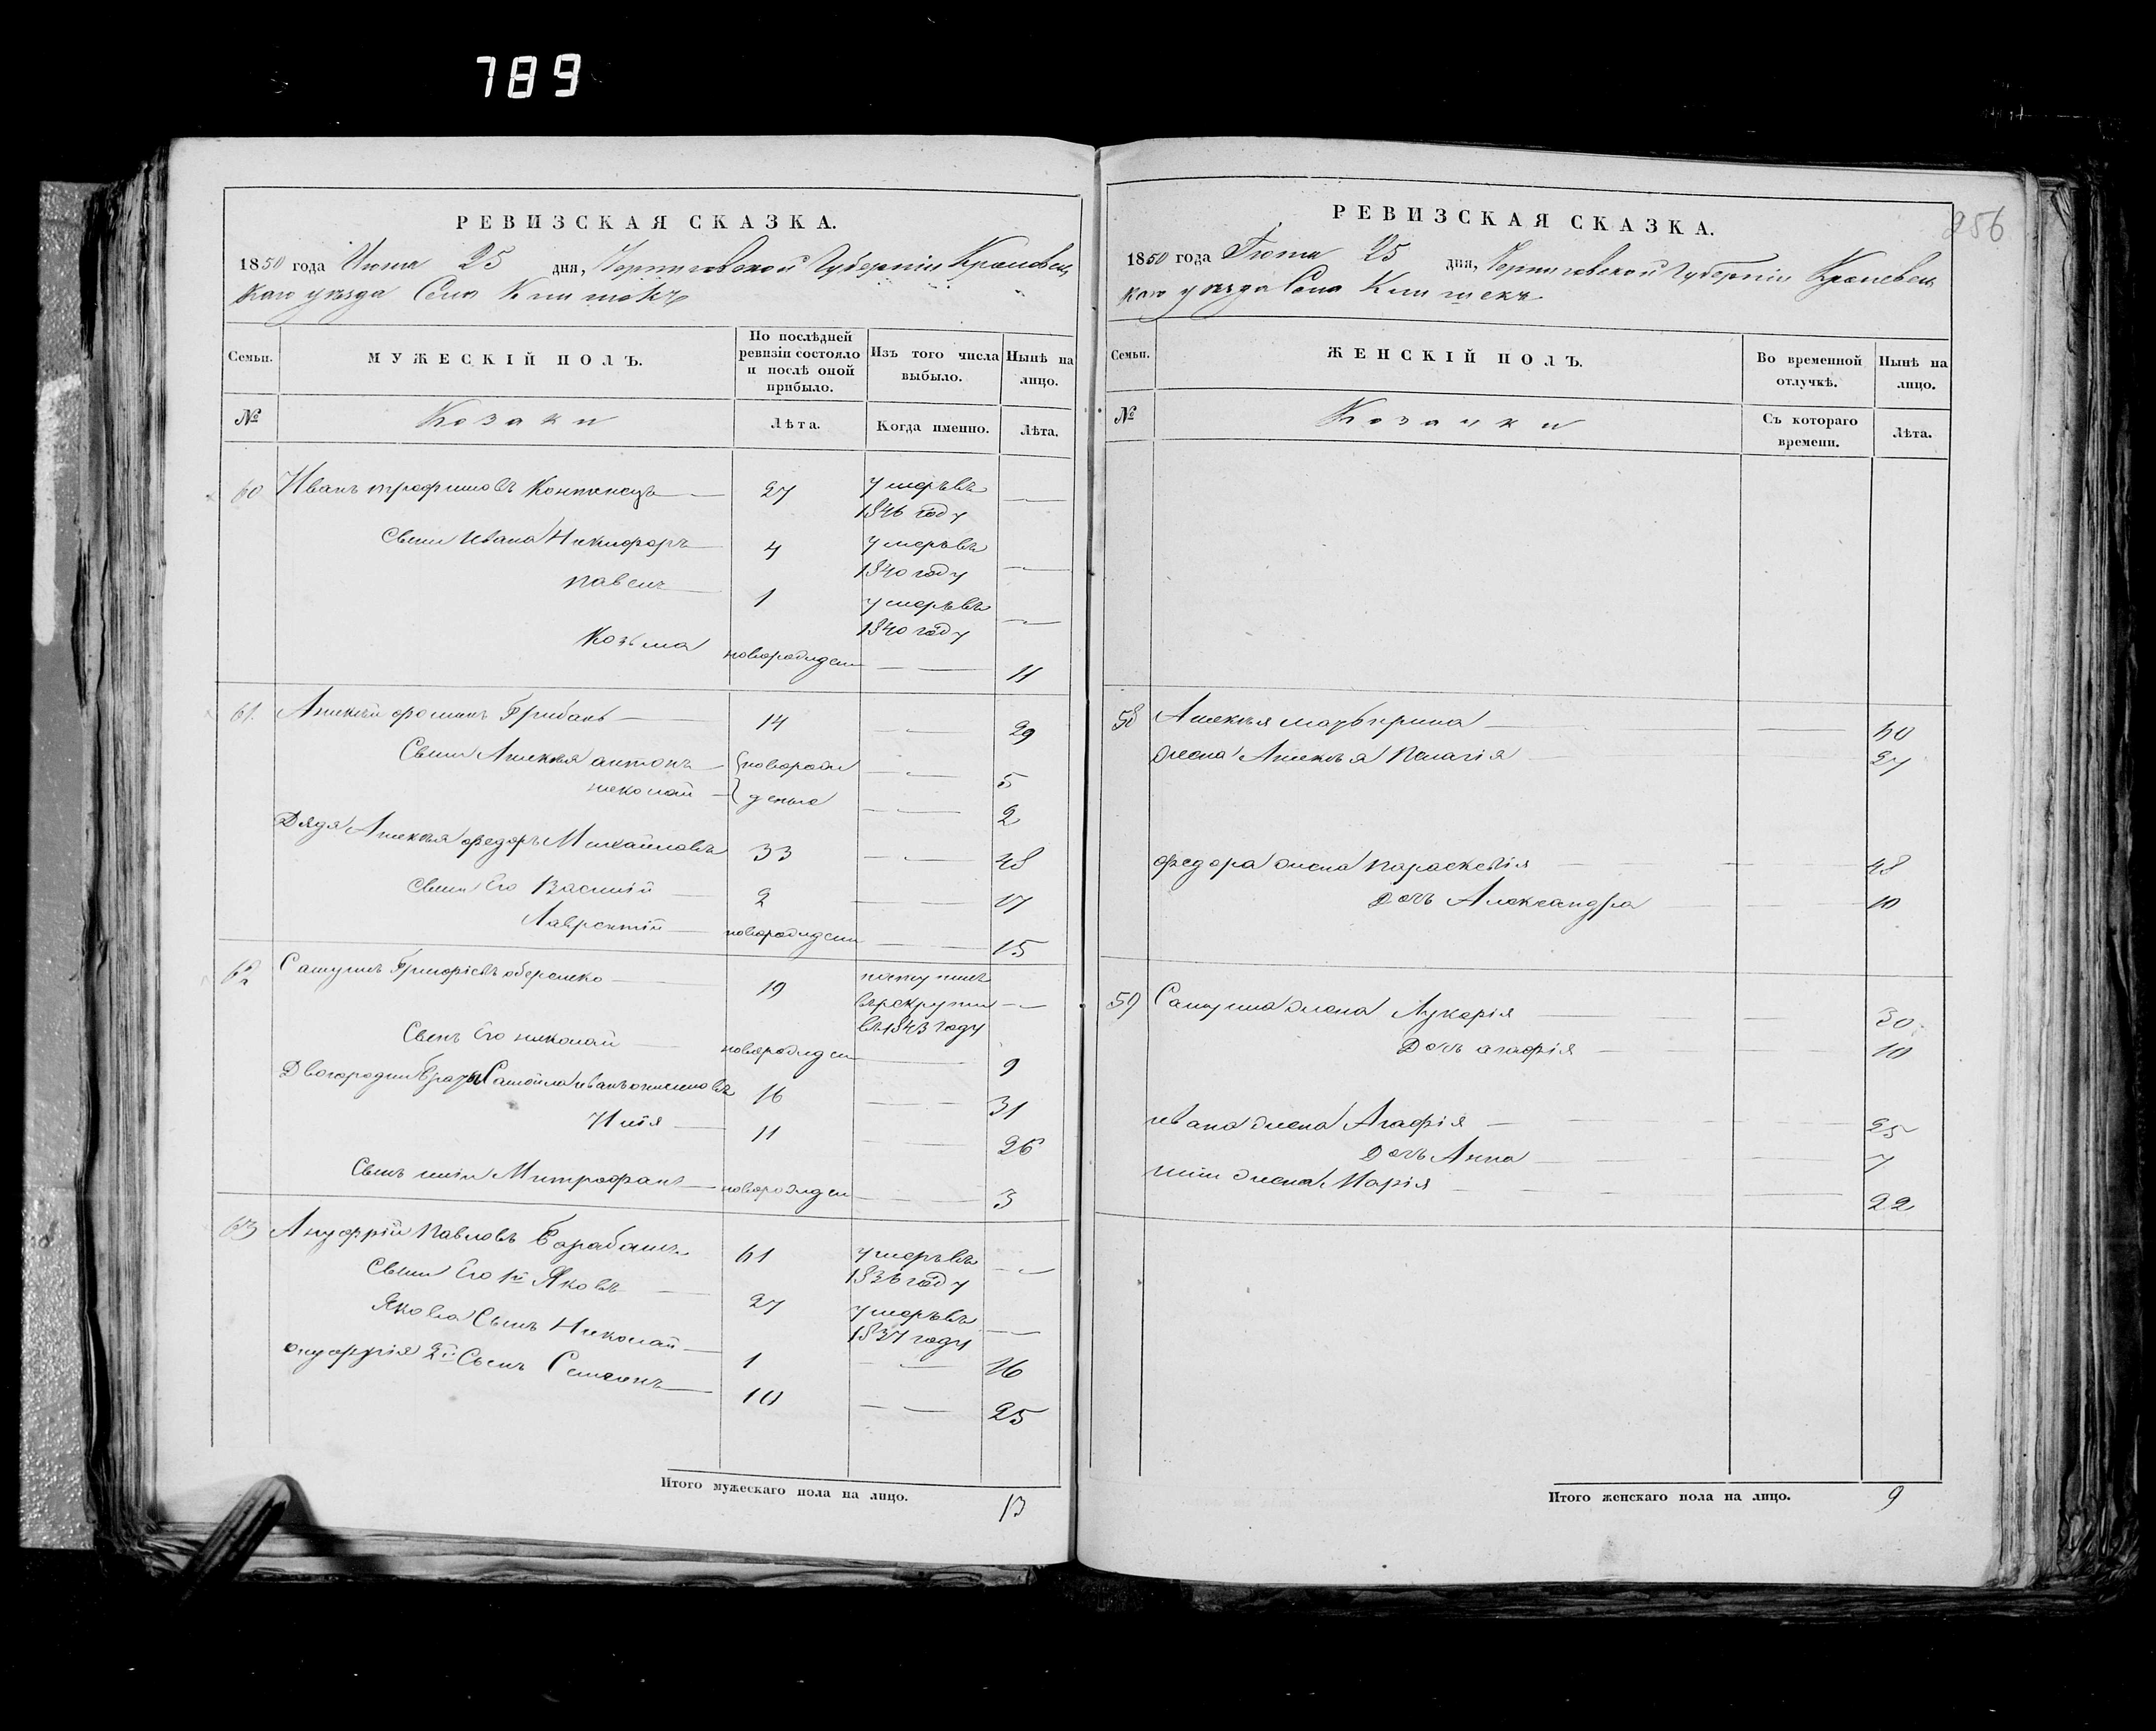 789
РЕВИЗСКАЯ СКАЗКА.
1850 года Июня 25 дня, Черниговской Губерніи Кролевец
каго уезда Села Клишокъ
Семьи.
МУЖЕСКІЙ ПОЛЪ.
По послѣдней ревизіи состояло и послѣ оной прибыло.
Изъ того числа выбыло.
Нынѣ на лицо.
№
Козаки
Лѣта.
Когда именно.
Лѣта.
60 Иванъ трофимовъ 27 умеръ въ 1846 году —
Сыни Ивана Никифоръ 4 умеръ въ 1840 году —
павелъ 1 умеръ въ 1840 году —
Козьма новорожден — 11
61. Алексѣй фоминъ Грибанъ 14 — 29
Сыни Алексѣя антонъ новорож — 5
николай деные — 2
Дядя Алексѣя федоръ Михайловъ 33 — 48
Сыни Его Василій 2 — 17
Лаврентій новорожден — 15
62 Самуилъ Григоріевъ 19 поступилъ въ рекруты в 1843 году —
Сынъ Его николай новорожден — 9
Двоюродни братя Самойла иванъ 16 — 31
Илія 11 — 26
Сынъ иліи Митрофанъ новорожден — 3
63 Ануфрій Павловъ Барабашъ 61 умеръ въ 1836 году —
Сыни Его 1й Яковъ 27 умеръ въ 1837 году —
Якова Сынъ Николай 1 — 16
онуфрія 2й Сынъ Семіонъ 10 — 25
Итого мужескаго пола на лицо. 13
256
РЕВИЗСКАЯ СКАЗКА.
1850 года Іюня 25 дня, Черниговской Губерніи Кролевец
каго уезда Села Клишекъ
Семьи.
ЖЕНСКІЙ ПОЛЪ.
Во временной отлучкѣ.
Нынѣ на лицо.
№
Козачки
Съ котораго времени.
Лѣта.
58 Алексѣя мать ирина — 60
жена Алексѣя Пелагія 27
федора жена параскевія — 48
Дочь Александра — 10
59 Самуила жена Лукерія — 30
Дочь агафія — 10
ивана жена Агафія — 25
Дочь Анна — 7
иліи жена Марія — 22
Итого женскаго пола на лицо. 9